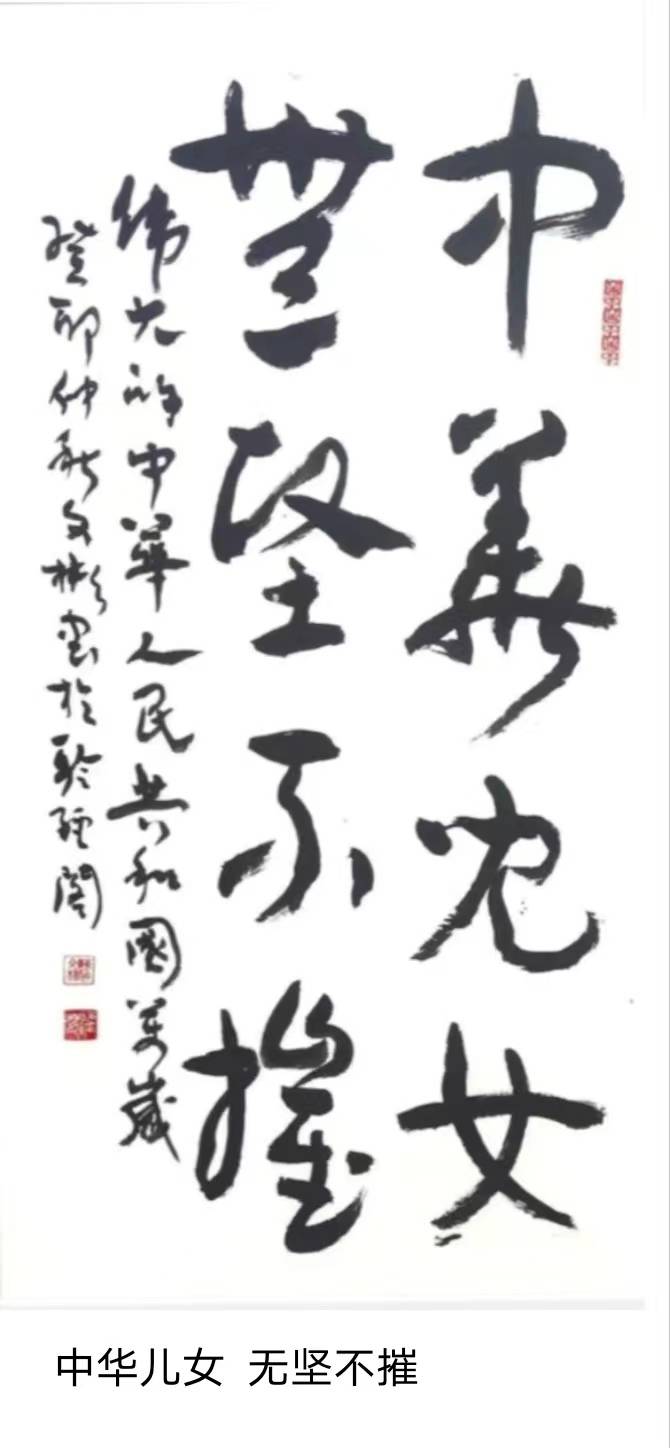 中華児女
無堅不摧
偉大的中華人民共和國萬歲
癸卯仲秋文彬書於聆 閣
中华儿女 无坚不摧